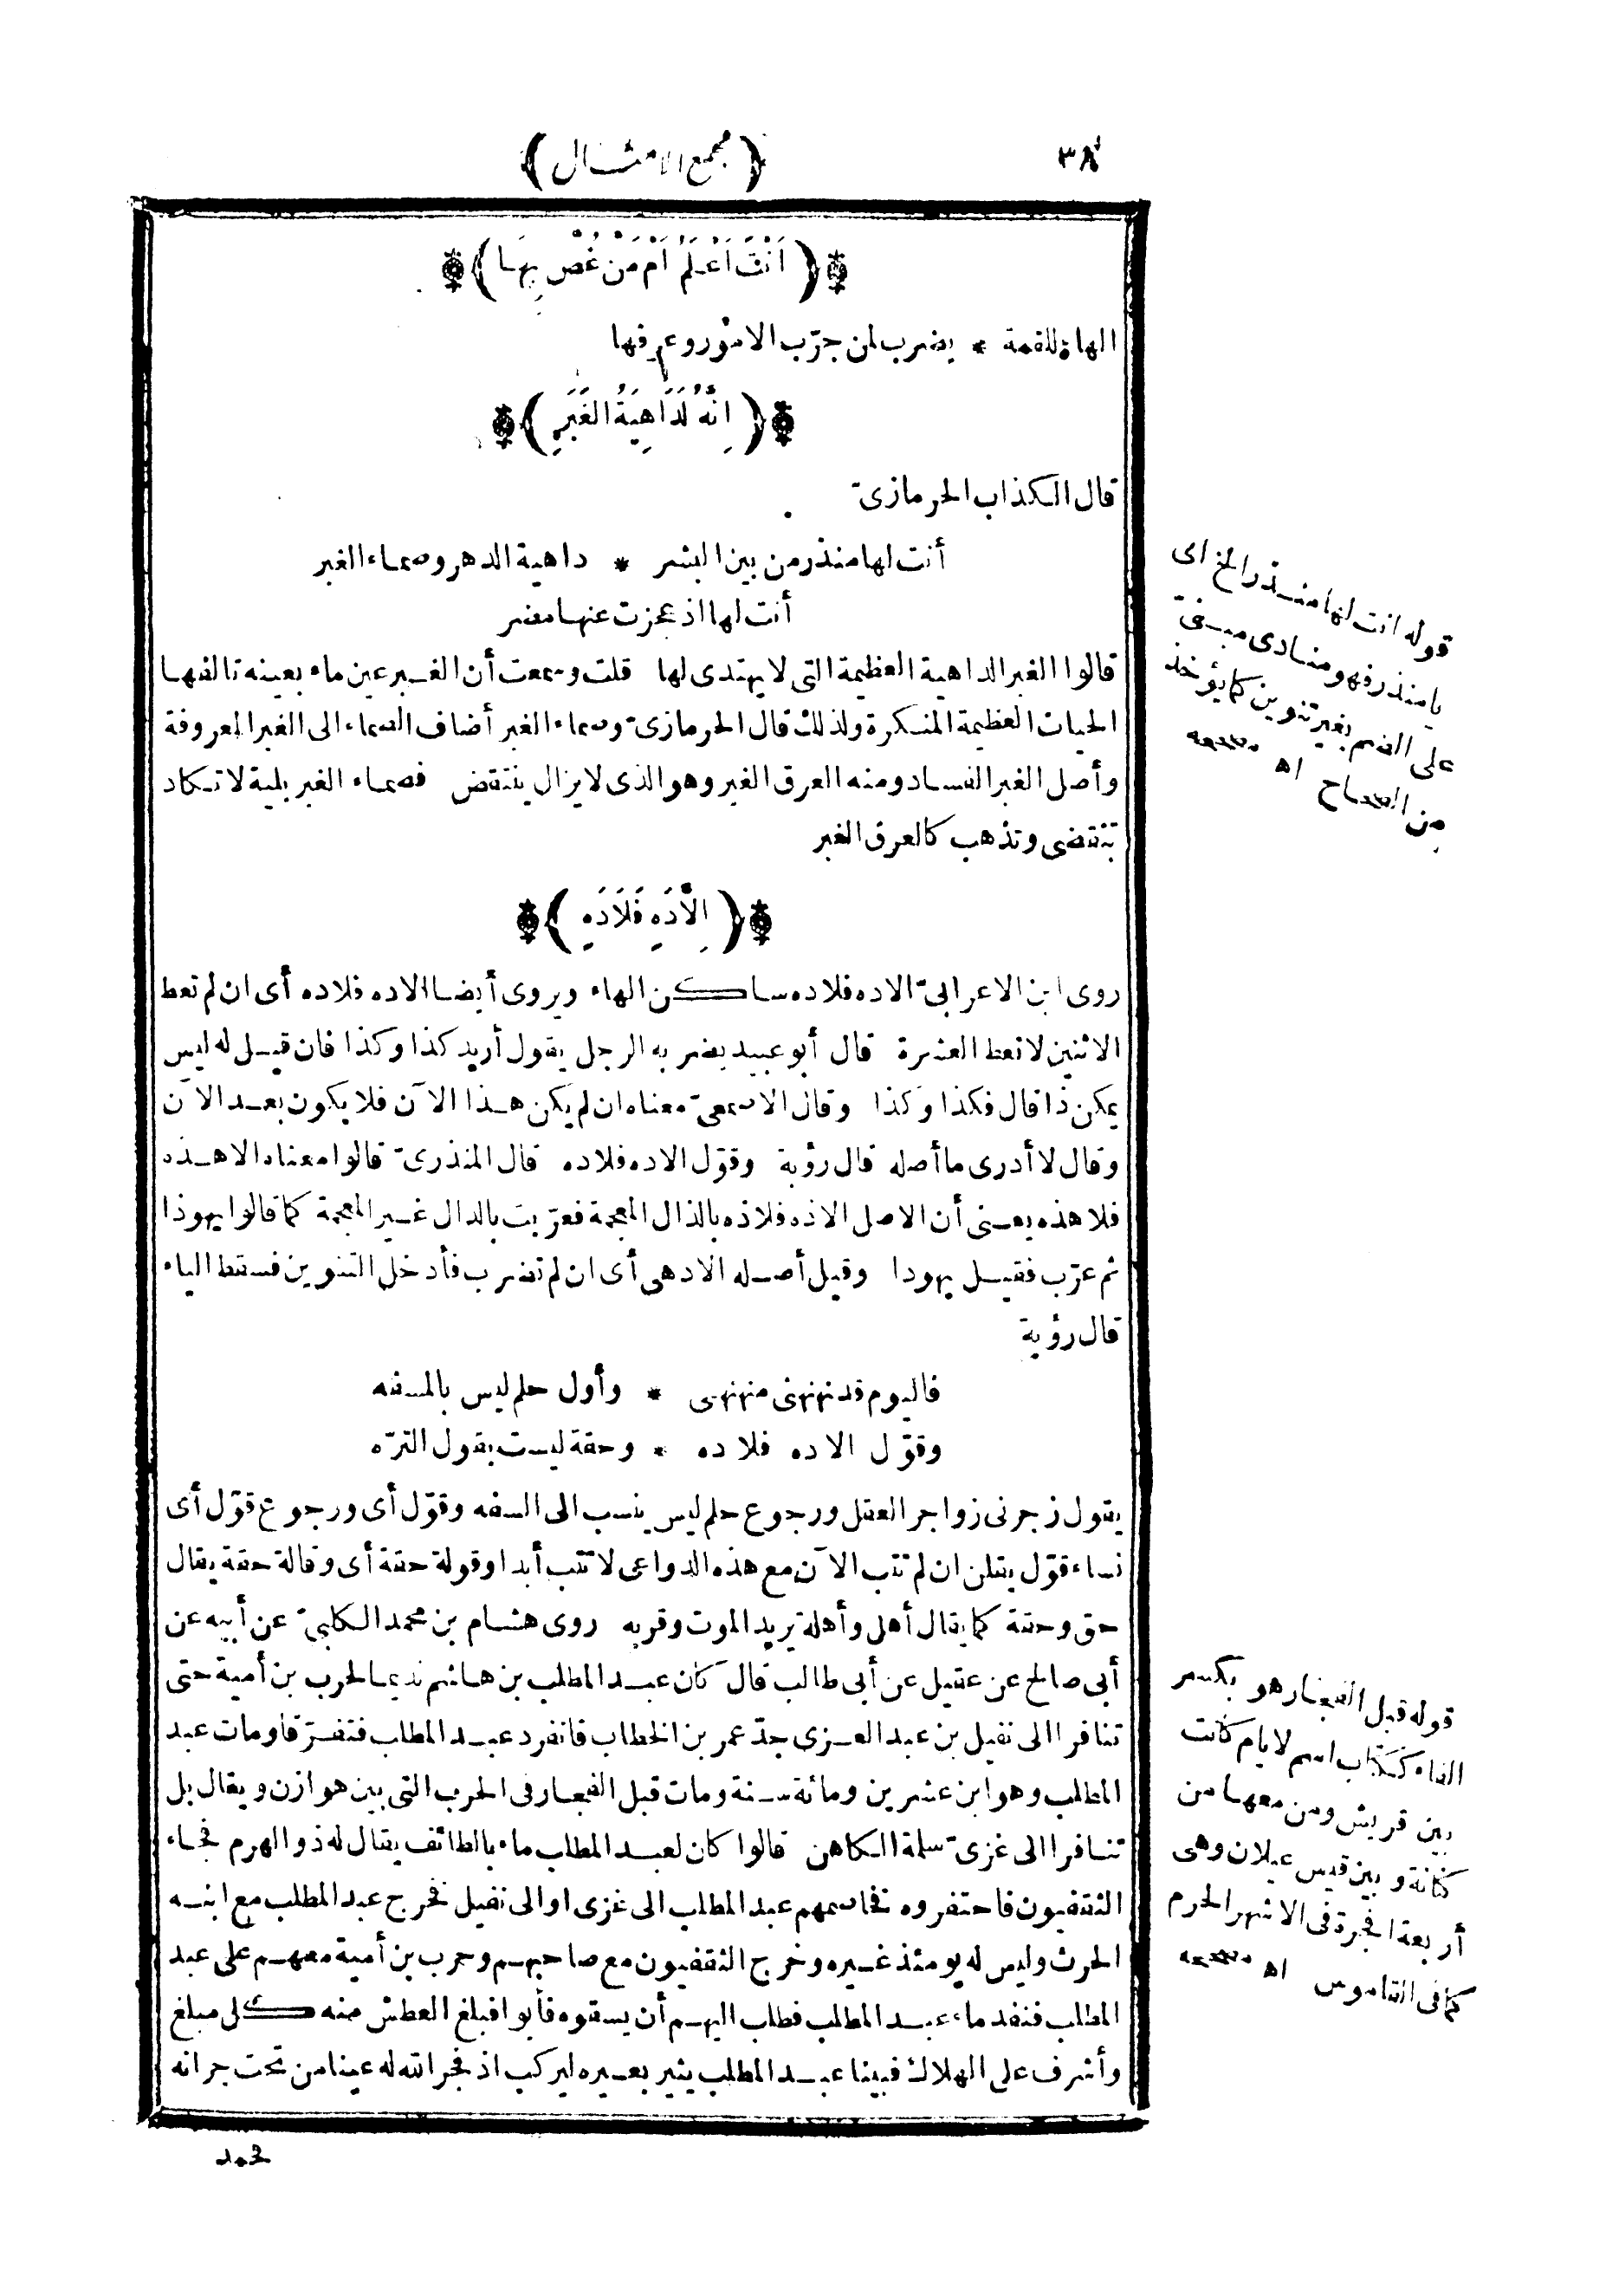 ٣٨
(مجمع الامثال)
(اَنْتَ اَعْلَمُ اَمْ مَنْ غُصَّ بِهَا)
الهاء للقمة * يضرب لمن جرّب الامور وعرفها
(اِنَّهُ لَدَاهِيَةُ الغَبَرِ)
قال الكذاب الحرمازىّ
أنت لها منذر من بين البشر * داهية الدهر وصماء الغبر
أنت لها اذ عجزت عنها مضر
قالوا الغبر الداهية العظيمة التى لا يهتدى لها قلت وسمعت أن الغبر عين ماء بعينه تالفها
الحيات العظيمة المنكرة ولذلك قال الحرمازىّ وصماء الغبر أضاف الصماء الى الغبر المعروفة
وأصل الغبر الفساد ومنه العرق الغبر وهو الذى لا يزال ينتقض فصماء الغبر بلية لا تكاد
تنقضى وتذهب كالعرق الغبر
(اِلَّادَهٍ فَلَادَهٍ)
روى ابن الاعرابىّ الاده فلاده ساكن الهاء ويروى أيضا الاده فلاده أى ان لم تعط
الاثنين لا تعط العشرة قال أبو عبيد يضربه الرجل يقول أريد كذا وكذا فان قيل له ليس
يمكن ذا قال فكذا وكذا وقال الاصمعىّ معناه ان لم يكن هذا الآن فلا يكون بعد الآن
وقال لا أدرى ما أصله قال رؤبة وقوّل الاده فلاده قال المنذرىّ قالوا معناه الاهذه
فلا هذه يعنى أن الاصل الاذه فلاذه بالذال المعجمة فعرّبت بالدال غير المعجمة كما قالوا يهوذا
ثم عرّب فقيل يهودا وقيل أصله الادهى أى ان لم تضرب فأدخل التنوين فسقط الياء
قال رؤبة
فاليوم قد نهنهنى منهنهى * وأول حلم ليس بالمسفه
وقوّل الاده فلاده * وحقة ليست بقول الترّه
يقول زجرنى زواجر العقل ورجوع حلم ليس ينسب الى السفه وقوّل أى ورجوع قوّل أى
نساء قوّل يقلن ان لم تتب الآن مع هذه الدواعى لا تتب أبدا وقولة حقة أى وقالة حقة يقال
حق وحقة كما يقال أهل وأهلة يريد الموت وقربه روى هشام بن محمد الكلبىّ عن أبيه عن
أبى صالح عن عقيل عن أبى طالب قال كان عبد المطلب بن هاشم نديما لحرب بن أمية حتى
تنافرا الى نفيل بن عبد العزى جدّ عمر بن الخطاب فانفرد عبد المطلب فتفرّقا ومات عبد
المطلب وهو ابن عشرين ومائة سنة ومات قبل الفجار فى الحرب التى بين هوازن ويقال بل
تنافرا الى غزىّ سلمة الكاهن قالوا كان لعبد المطلب ماء بالطائف يقال له ذو الهرم فجاء
الثقفيون فاحتفروه فخاصمهم عبد المطلب الى غزى او الى نفيل فخرج عبد المطلب مع ابنه
الحرث وليس له يومئذ غيره وخرج الثقفيون مع صاحبهم وحرب بن أمية معهم على عبد
المطلب فنفد ماء عبد المطلب فطلب اليهم أن يسقوه فأبوا فبلغ العطش منه كل مبلغ
وأشرف على الهلاك فبينا عبد المطلب يثير بعيره ليركب اذ فجر الله له عينا من تحت جرانه
فحمد
قوله انت لها منذر الخ اى
يا منذر فهو منادى مبنىّ
على الضم بغير تنوين كما يؤخذ
من الصحاح اه مصححه
قوله قبل الفجار هو بكسر
الفاء ككتاب اسم لايام كانت
بين قريش ومن معها من
كنانة وبين قيس عيلان وهى
أربعة افجرة فى الاشهر الحرم
كما فى القاموس اه مصححه